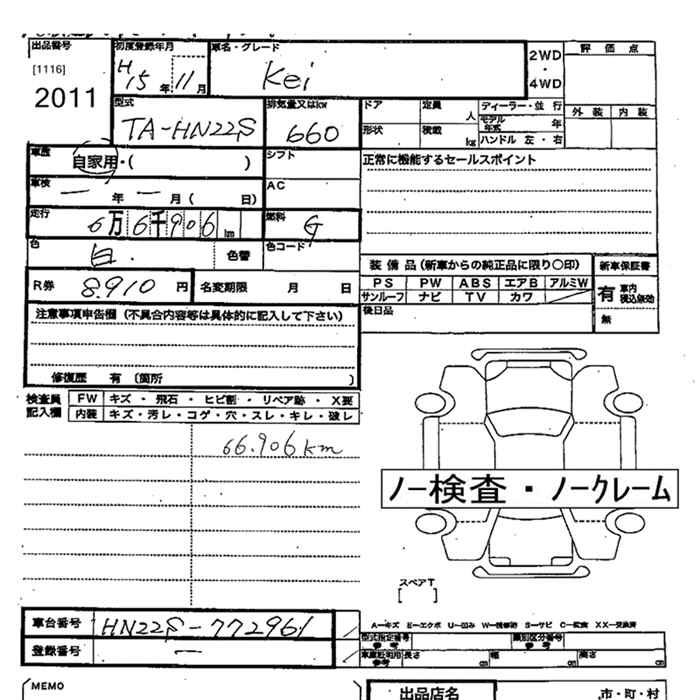 出品番号 初度登録年月 車名・グレード 評価点
[1116] H 15年 11月 Kei 2WD・4WD
2011 外装 内装
型式 排気量又はkw ドア 定員 人 ディーラー・並行
TA-HN22S 660 形状 積載 kg モデル年式 年
ハンドル 左・右
車歴 自家用・( ) シフト 正常に機能するセールスポイント
車検 一 年 一 月 ( 日) AC
走行 6万6千906km 燃料 G
色 白. 色替 色コード
装備品(新車からの純正品に限り〇印) 新車保証書
R券 8.910 円 名変期限 月 日 PS PW ABS エアB アルミW 有 車内 税込無効
サンルーフ ナビ TV カワ
注意事項申告欄(不具合内容等は具体的に記入して下さい) 後日品 無
修復歴 有(箇所 )
検査員記入欄 FW キズ・飛石・ヒビ割・リペア跡・X要
内装 キズ・汚レ・コゲ・穴・スレ・キレ・破レ
66.906km
ノー検査・ノークレーム
スペアT
[ ]
車台番号 HN22S-772961 A-キズ E-エクボ U-凹み W-補修跡 S-サビ C-腐食 XX-交換済
型式指定番号 参考 類別区分番号 参考
登録番号 一 車庫証明用 参考 長さ cm 幅 cm 高さ cm
MEMO 出品店名 市・町・村